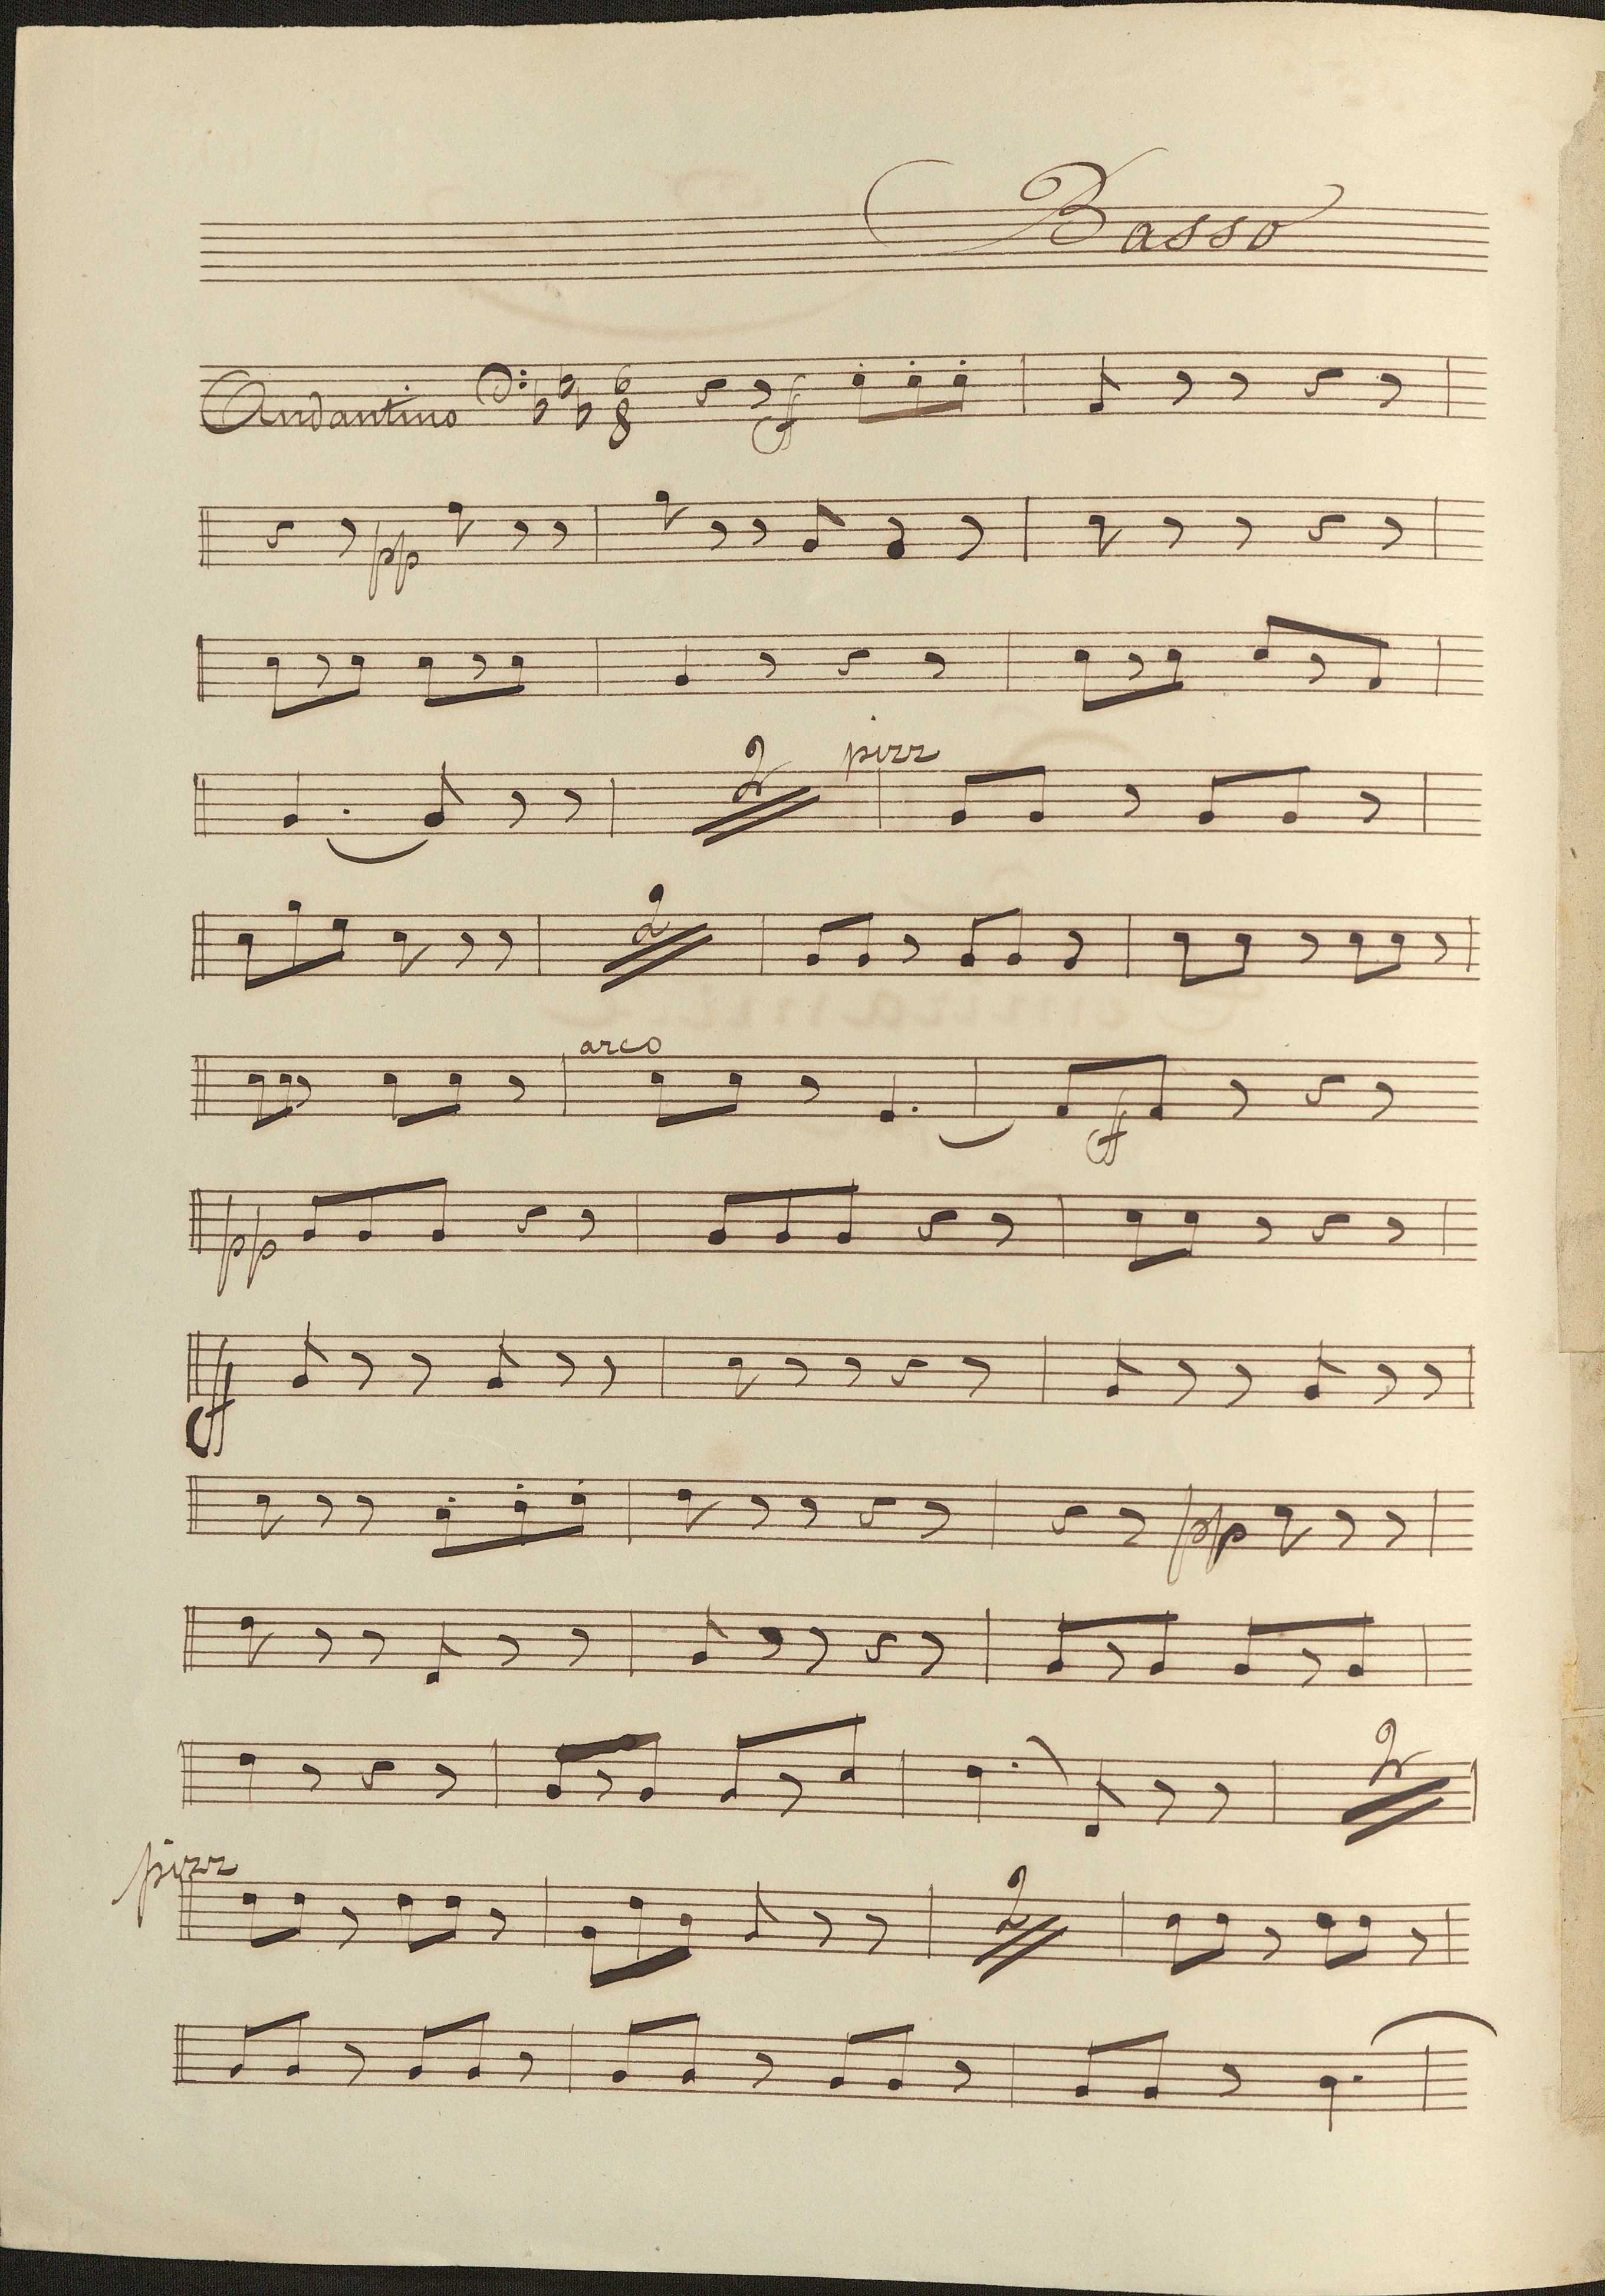 Basso
Andantino 6 8 ff
pp
2 pizz
2
arco
ff
pp
ff
pp
2
pizz 2